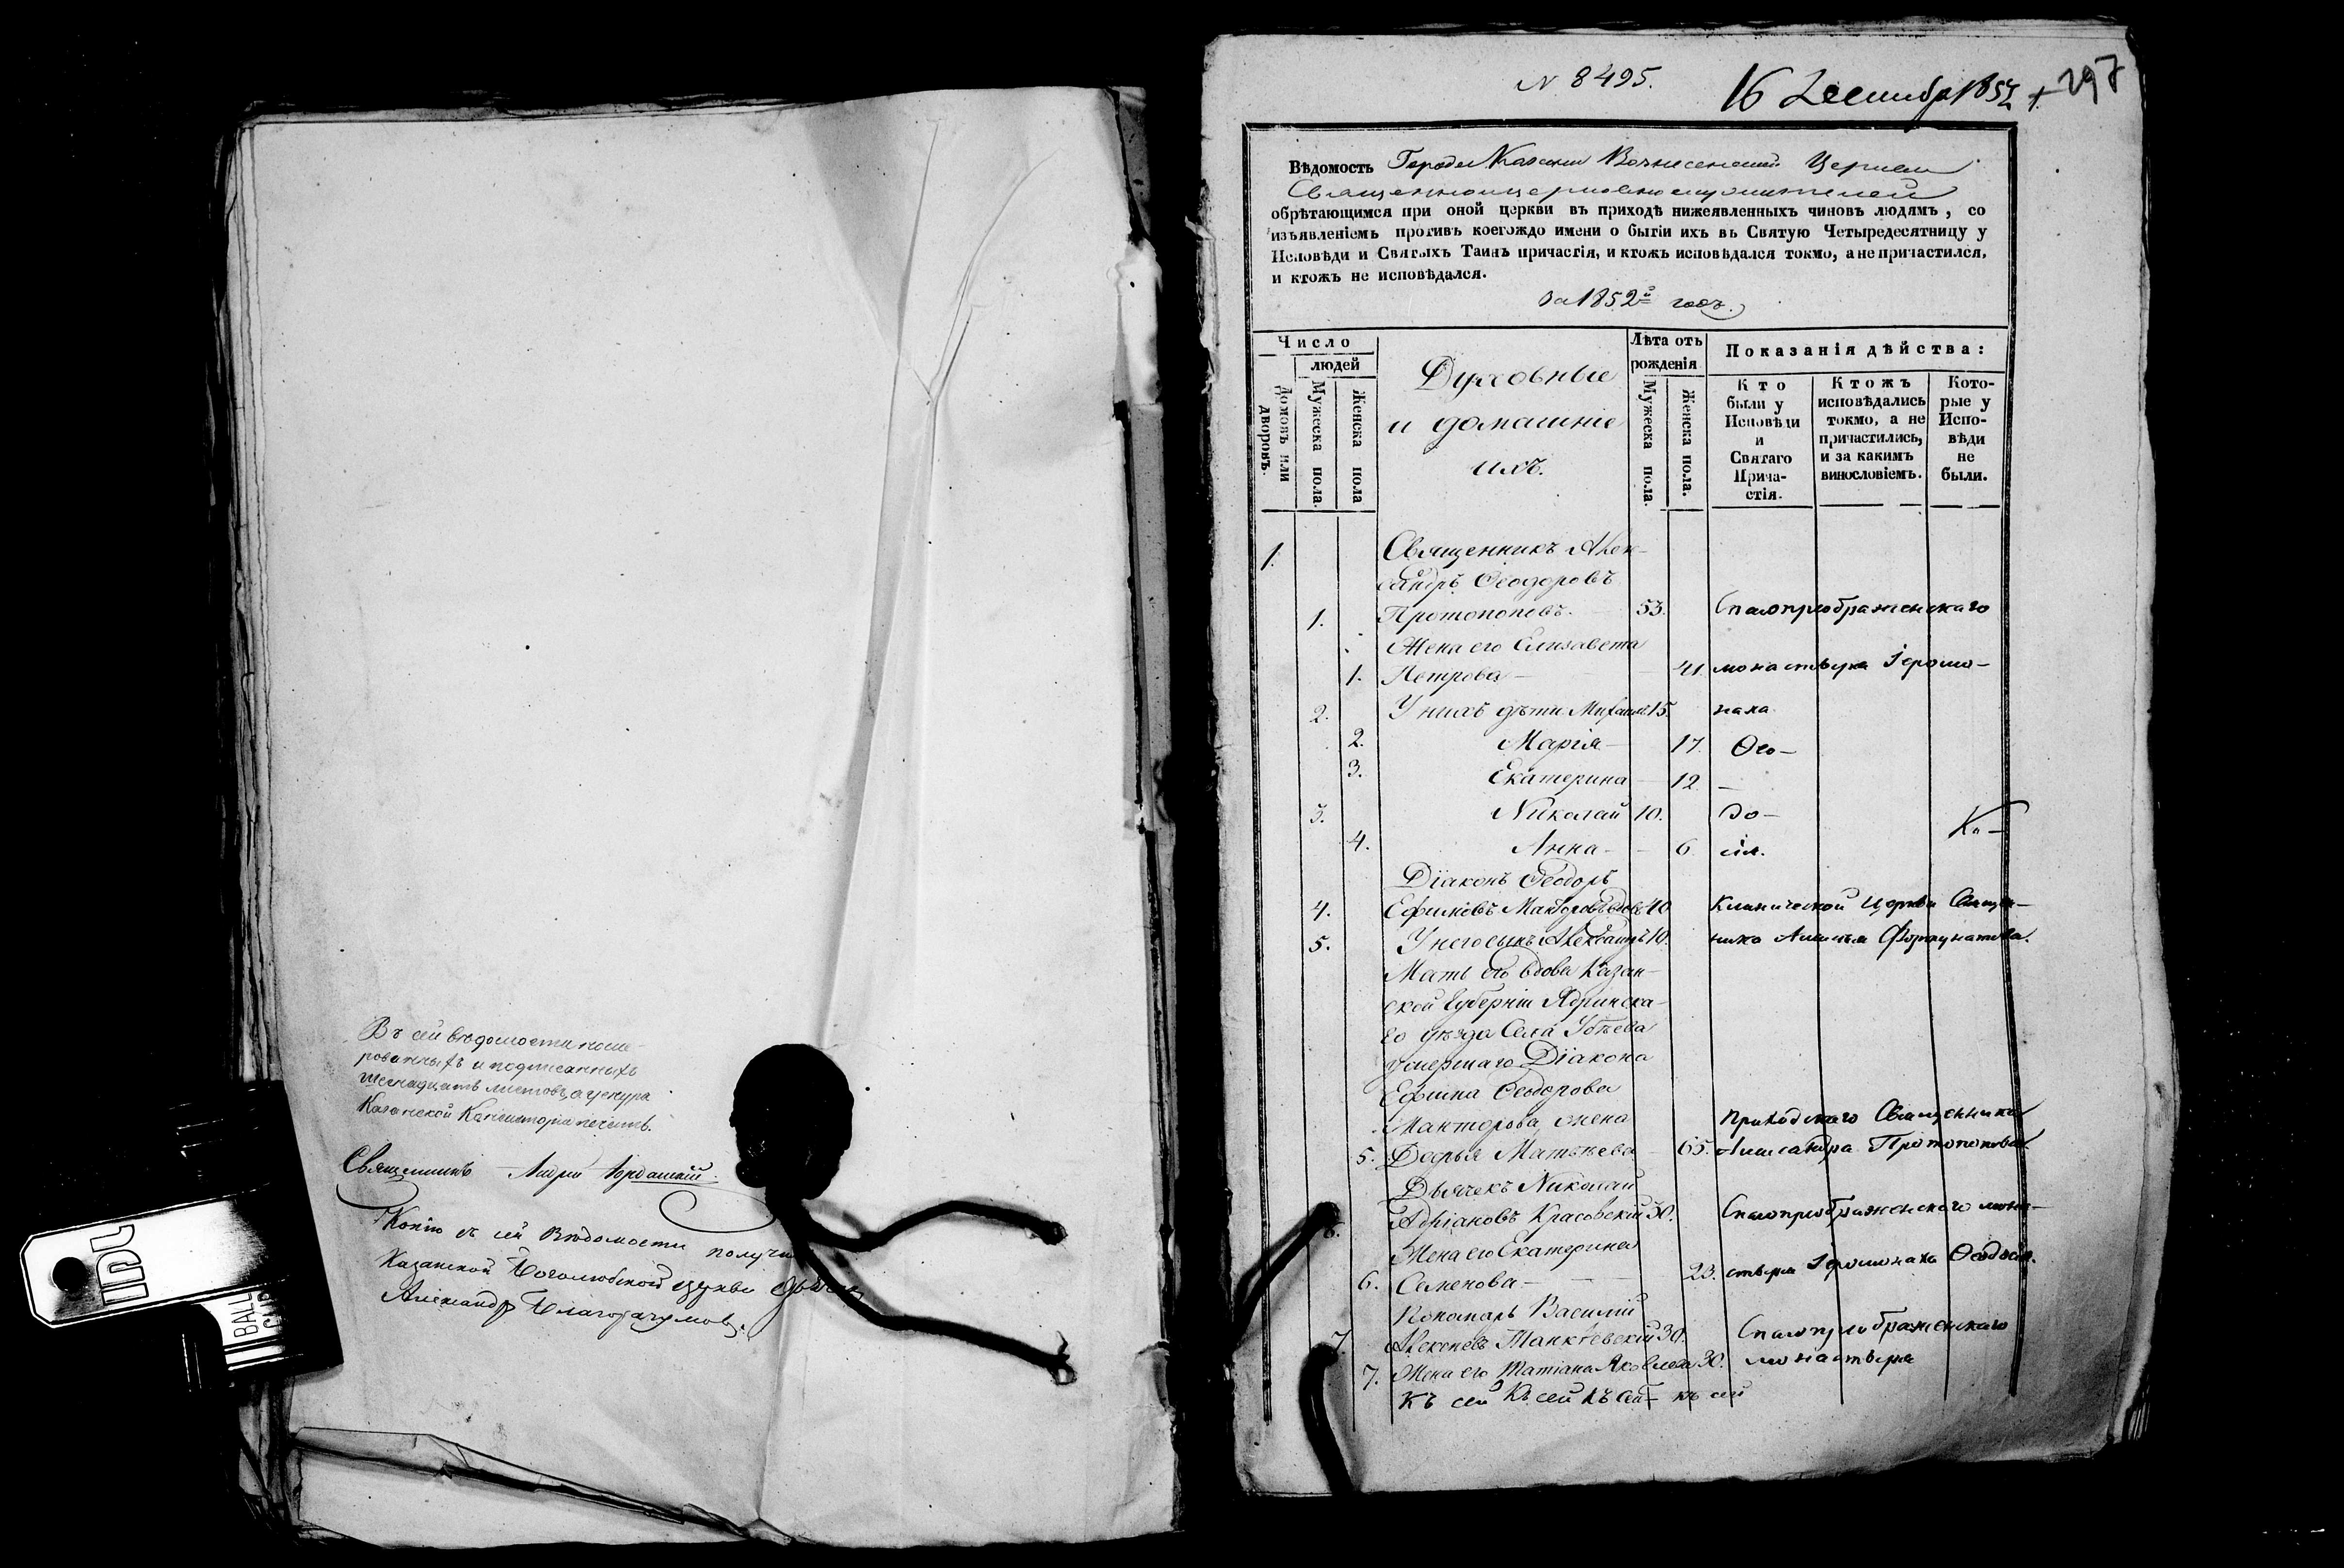 Въ сей ведомостиноше-
рованныхъ и подписанныхъ
шестнадцать листовъ, а у снура
Казанской Консисторіи печать.
Священникъ Андрей
Копію съ сей Ведомости получи
Казанской Боголюбской церкви
Александр
N 8495.
16 1852 + 297
Вѣдомость Города Казани Вознесенской Церкви
Священноицерковнослужителей
обрѣтающимся при оной церкви въ приходѣ нижеявленныхъ чиновъ людямъ, со
изъявленіемъ противъ коегождо имени о бытіи ихъ въ Святую Четыредесятницу у
Исповѣди и Святыхъ Таинъ причастія, и ктожъ исповѣдался токмо, а не причастился,
и ктожъ не исповѣдался.
За 1852й годъ.
Число
людей
Домовъ или
дворовъ.
Мужеска пола.
Женска пола
Духовные
и домашніе
ихъ.
Лѣта отъ
рожденія
Мужеска пола.
Женска пола.
Показанія дѣйства:
Кто
были у
Исповѣди
и
Святаго
Прича-
стія.
Ктожъ
исповѣдались
токмо, а не
причастились,
и за какимъ
винословіемъ.
Кото-
рые у
Испо-
вѣди
не
были.
1. Священникъ Алек-
сандръ Ѳеодоровъ
1. Протопоповъ. 53. Спасопреображенскаго
Жена его Елизавета
1. Петрова 41. монастыря Іеромо-
2. У нихъ дѣти Михаилъ 15. наха
2. Марія 17. Ѳео-
3. Екатерина 12. -
3. Николай 10. до-
4. Анна 6 сія. Ка-
Діаконъ Ѳеодоръ
4. Ефимовъ Манторовъ вдовъ 40 Клинической Церкви Священ-
5. У него сынъ Александръ 10. ника Фортунатова.
Мать его вдова Казан-
ской Губерніи Ядринска-
го уѣзда Села Убѣева
умершаго Діакона
Ефима Ѳеодорова
Манторова, жена Приходскаго Священника
5. Дарья Матвѣева 65. Александра Протопопова
Дьячекъ Николай
6. Адріановъ Красовскій 30. Спасопреображенскаго мона-
Жена его Екатерина
6. Семенова 23. стыря Іеромонаха Ѳеодосія.
Пономарь Василій
7. Алексѣевъ 30. Спасопреображенскаго
7. Жена его Татіана Яковлева 30. монастыря
Къ сей Къ сей къ сей къ сей
IDC